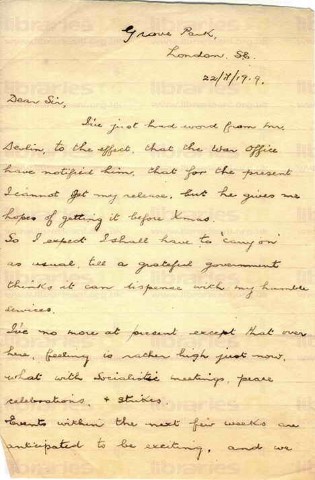 Grove Park,
London. SE.
22/7/19.9.
Dear Sir,
I've just had word from Mr.
Devlin, to the effect, that the War Office
have notified him, that for the present
I cannot get my release, but he gives me
hopes of getting it before Xmas.
So I expect I shall have to 'carry on'
as usual, till a grateful government
thinks it can dispence with my humble
services.
I've no more at present except that over
here, feeling is rather high just now,
what with Socialistic meetings, peace
celebrations, & strikes.
Events within the next few weeks are
anticipated to be exciting, and we
libraries